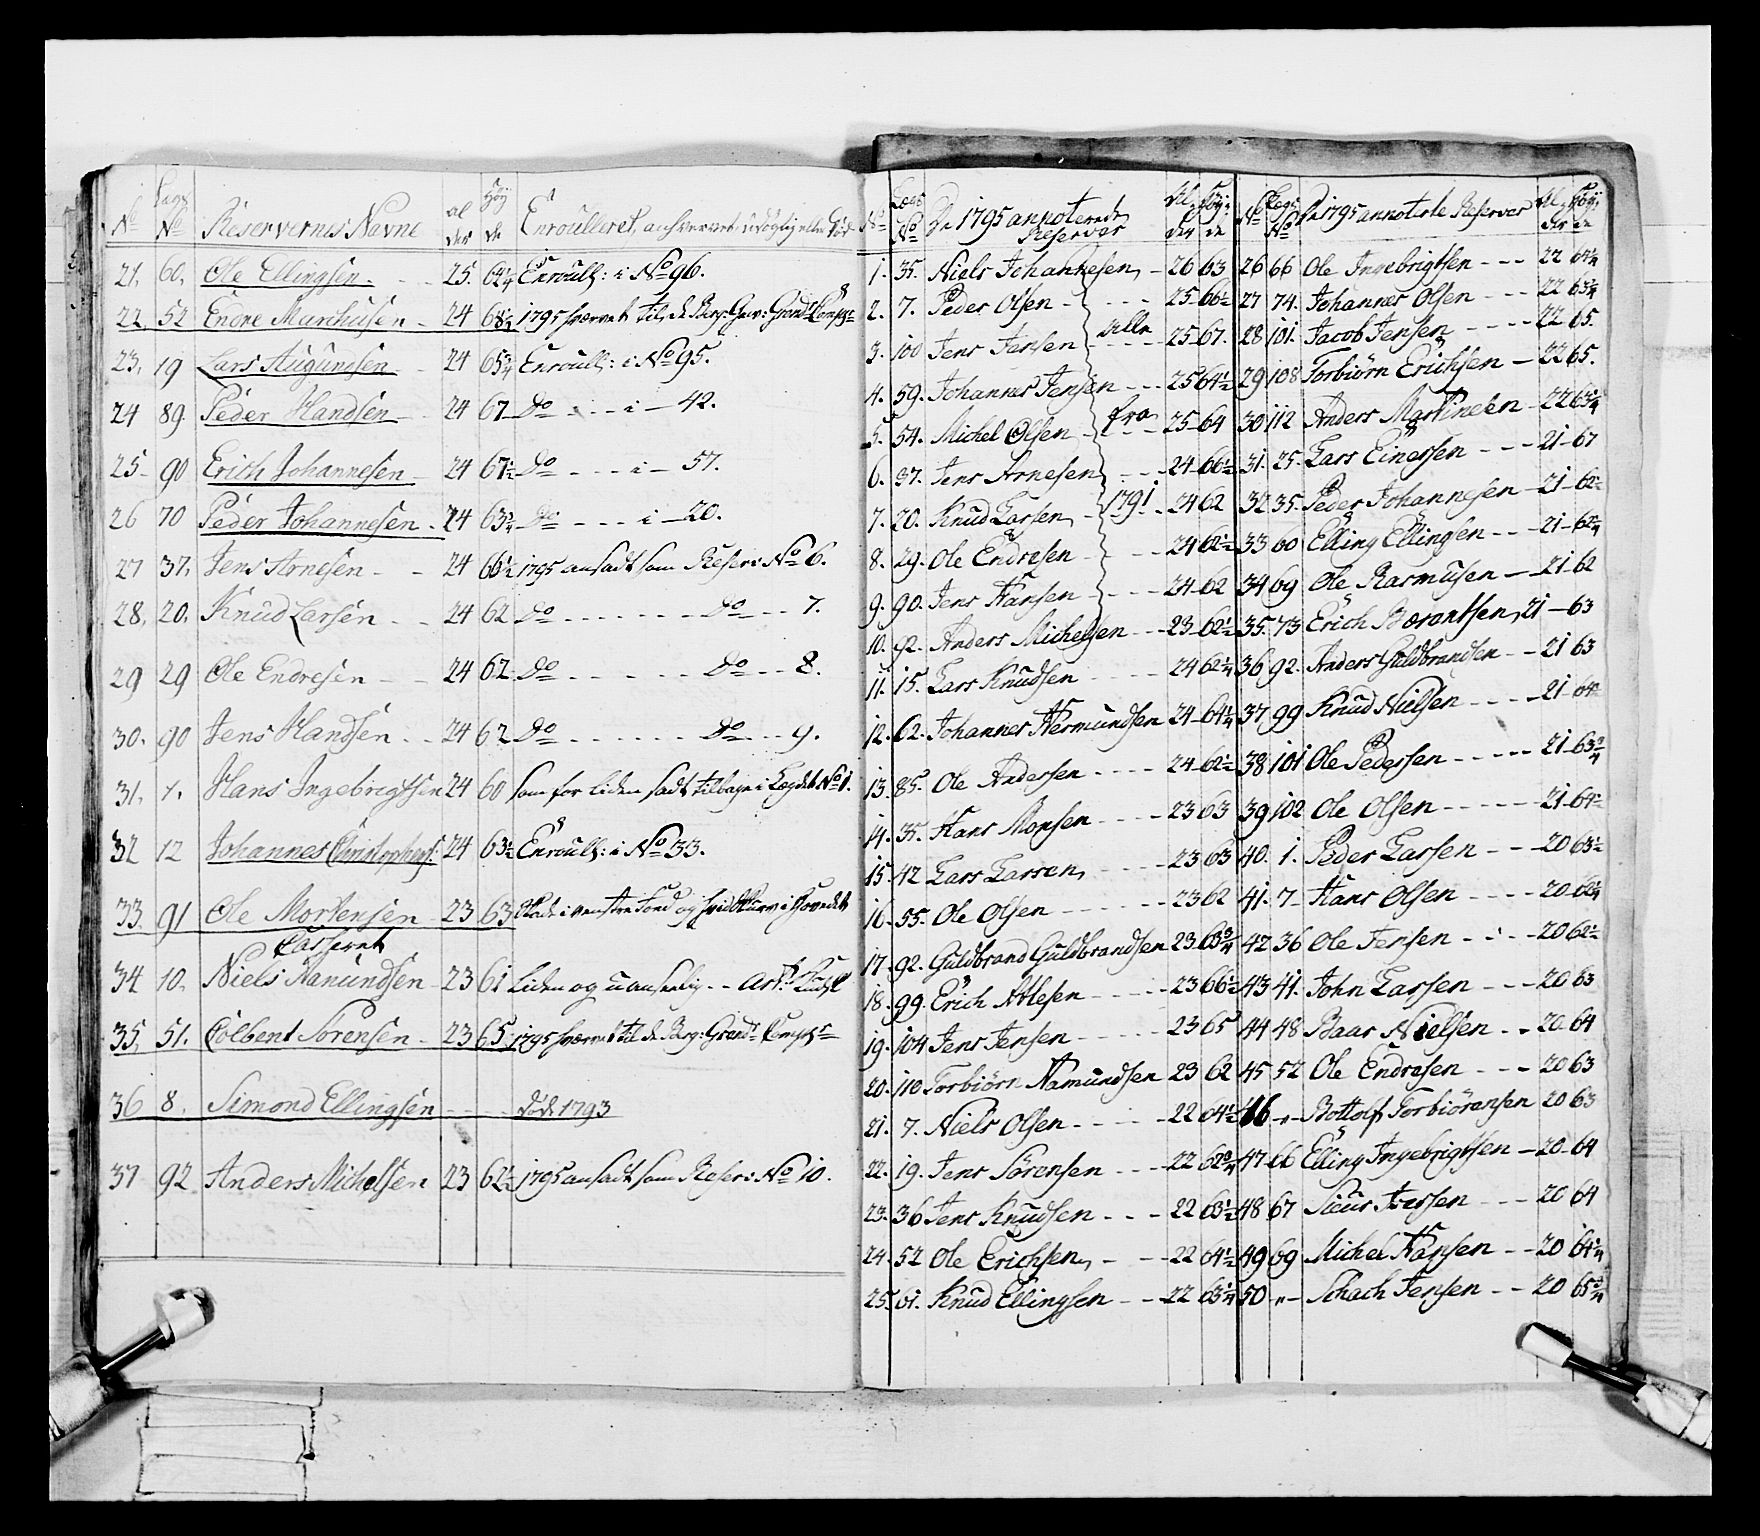 No Lægs No Reservernes Navne al der Høy de Enroulleret, anhvervet, udögtig eller Död
21. 60. Ole Ellingsen. 25. 64¼ Enroull: i No 96.
22 52 Endre Marchusen 24 68½ 1795 hværvet til de Berg: Gev: Grend: Comp:
23. 19 Lars Augundsen 24 65¾ Enroull: i No 95.
24 89. Peder Handsen 24 67 Do - - - i - 42.
25 90 Erich Johannesen 24 67½ Do - - - i - 57.
26 70 Peder Johannesen 24 63¾ Do - - - i - 20.
27 37. Jens Arnesen 24 66½ 1795 ansadt som Reserv No 6.
28. 20. Knud Larsen 24 62 Do - - - Do - - 7.
29 29 Ole Endresen 24 62 Do - - - Do - - 8.
30. 90 Jens Handsen 24 62 Do - - - Do - - 9.
31. 1. Hans Ingebrigtsen 24 60 som for liden sadt tilbage i Lægdet No 1.
32 12 Johannes Christophers: 24 63½ Enroull: i No 33.
33. 91 Ole Mortensen 23 63 Skade i venstre Foed og hvid Skurv i Hovedet
Casseret
34 10. Niels Hamundsen 23 61 Liden og uanseelig - -
35. 51. Colbent Sorensen 23 65 1795 hværvet til de Berg: Grend: Comp:
36 8. Simond Ellingsen - - död 1793
37 92 Anders Michelsen 23 62½ 1795 ansadt som Reserv No 10.
No Lægs No De 1795 annoterede Reserver Al der Høy de
1. 35. Niels Johannesen 26 63
2. 7. Peder Olsen 25 66½
3. 100 Jens Jensen alle 25 67.
4. 59. Johannes Jensen 25 64½
5. 54. Michel Olsen fra 25 64
6. 37. Jens Arnesen 24 66½
7. 20. Knud Larsen 1791 24 62
8. 29. Ole Endresen 24 62½
9. 90. Jens Hansen 24 62
10. 92. Anders Michelsen 23 62½
11. 15. Lars Knudsen 24 62¼
12. 62. Johannes Hermundsen 24 64¼
13. 85. Ole Andersen 24 62½
14. 35. Hans Monsen 23 63
15. 42 Lars Larsen 23 63
16. 55. Ole Olsen 23 62
17. 92. Guldbrand Guldbrandsen 23 63¾
18. 99. Erich Atlesen 23 66½
19. 104 Jens Jensen 23 65
20. 110 Torbiörn Hamundsen 23 62
21. 7. Niels Olsen 22 64½
22. 19. Jens Sörensen 22 62¾
23. 36 Jens Knudsen 22 63½
24. 52 Ole Erichsen 22 64½
25. 61. Knud Ellingsen 22 63¼
No Lægs No De 1795 annoterte Reserver Al der Høy de
26 66 Ole Ingebrigtsen 22 64¼
27 74. Johannes Olsen 22 63¼
28 101. Jacob Jensen 22 65.
29 108 Torbiörn Erichsen 22 65.
30 112 Anders Martinesen 22 63¾
31. 25. Lars Einersen 21 67
32 35. Peder Johannesen 21 62½
33 60 Elling Ellingsen 21 62¼
34 69 Ole Rasmusen 21 62
35. 73 Erich Borantsen 21 63
36 92. Anders Guldbrandsen 21 63
37 99 Knud Nielsen 21 64½
38 101 Ole Pedersen 21 63¾
39 102 Ole Olsen 21 64½
40. 1. Peder Larsen 20 63½
41. 7 Hans Olsen 20 62¼
42 36 Ole Jensen 20 62½
43 41. John Larsen 20 63
44 48 Baar Nielsen 20 64
45 52 Ole Endresen 20 63
46 " Bottolf Torbiörensen 20 63
47 66 Elling Ingebrigtsen 20 64
48 67 Siur Iversen 20 64
49 69 Michel Hansen 20 64¼
50 " Schach Jensen 20 65¾